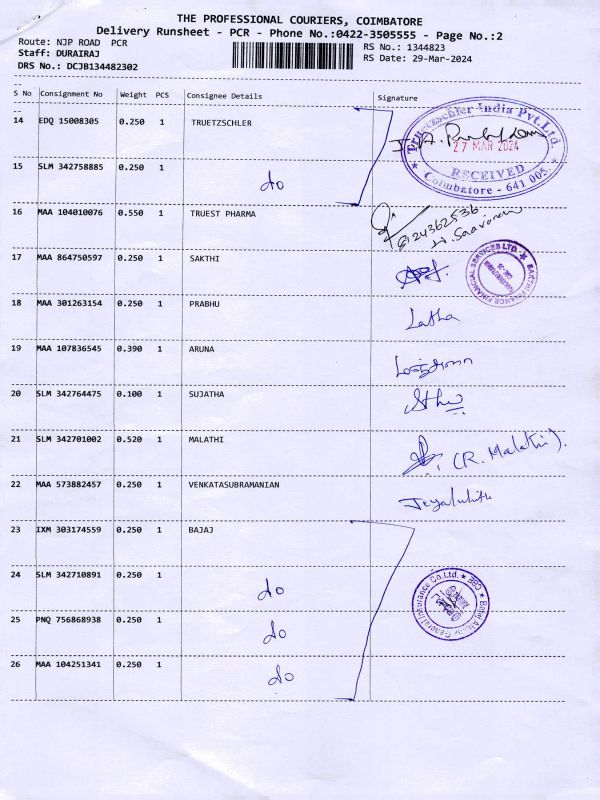 THE PROFESSIONAL COURIERS, COIMBATORE
Delivery Runsheet - PCR - Phone No.:0422-3505555 - Page No.:2
Route: NJP ROAD PCR
RS No.: 1344823
Staff: DURAIRAJ
RS Date: 29-Mar-2024
DRS No.: DCJB134482302
S No Consignment No Weight PCS Consignee Details Signature
14 EDQ 15008305 0.250 1 TRUETZSCHLER
Truetzschler India Pvt.Ltd.
27 MAR 2024
RECEIVED
Coimbatore - 641 005.
15 SLM 342758885 0.250 1 do
16 MAA 104010076 0.550 1 TRUEST PHARMA
17 MAA 864750597 0.250 1 SAKTHI
SAKTHI FINANCE FINANCIAL SERVICES LTD.
18 MAA 301263154 0.250 1 PRABHU Latha
19 MAA 107836545 0.390 1 ARUNA
20 SLM 342764475 0.100 1 SUJATHA
21 SLM 342701002 0.520 1 MALATHI (R. Malathi).
22 MAA 573882457 0.250 1 VENKATASUBRAMANIAN
23 IXM 303174559 0.250 1 BAJAJ
24 SLM 342710891 0.250 1 do
Bajaj Allianz General Insurance Co.Ltd.
25 PNQ 756868938 0.250 1 do
26 MAA 104251341 0.250 1 do